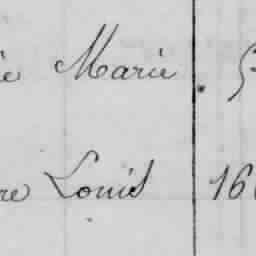 ie Marie
re Louis 16